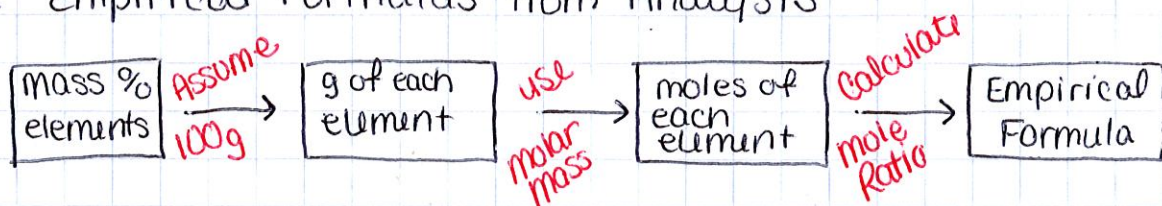 Empirical Formulas from Analysis
mass %
elements
Assume
100g
g of each
element
use
molar
mass
moles of
each
element
Calculate
mole
Ratio
Empirical
Formula